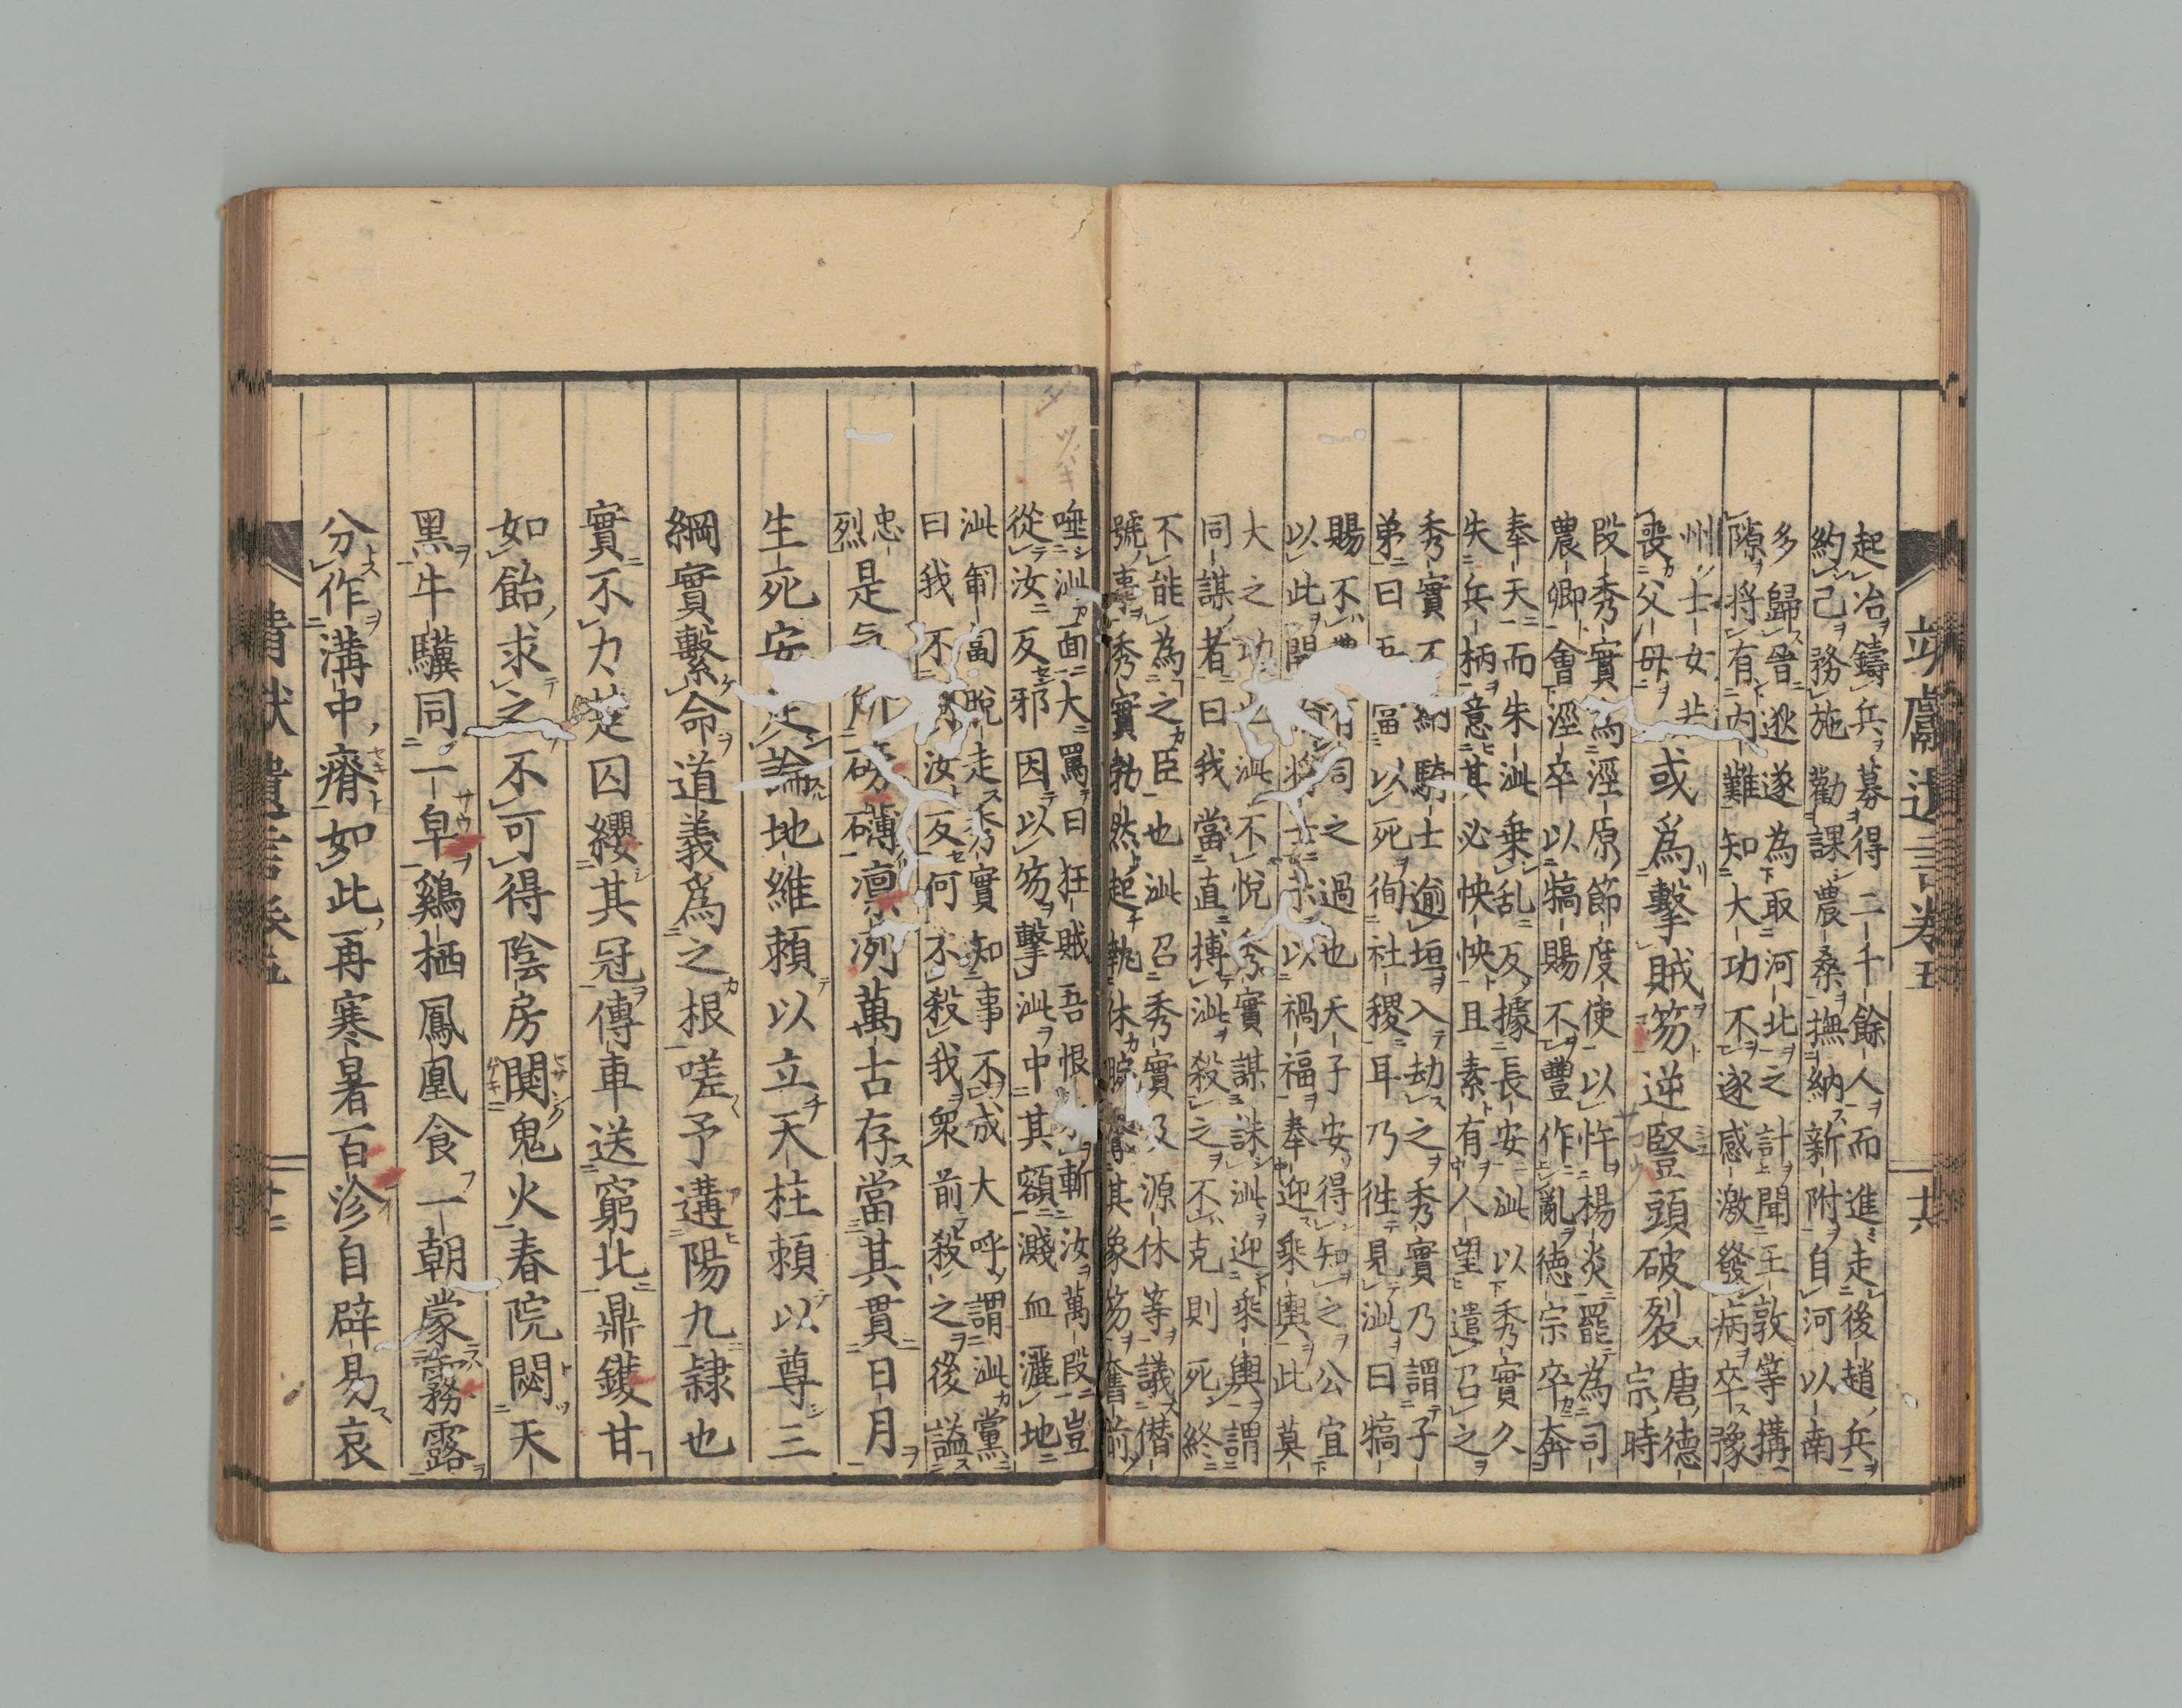 起冶鑄兵募得二千餘人而進走後趙兵
約己務施勸課農桑撫納新附自河以南
多歸晉逖遂為取河北之計聞王敦等搆
隙將有內難知大功不遂感激發病卒豫
州士女
喪父母
或為擊賊笏逆豎頭破裂
唐德
宗時
段秀實為涇原節度使以忤楊炎罷為司
農卿會涇卒以犒賜不豐作亂德宗卒奔
奉天而朱泚乗乱反據長安泚以秀實久
失兵柄意其必怏怏且素有人望遣召之
秀實不納騎士逾垣入劫之秀實乃謂子
弟曰吾當以死徇社稷耳乃徃見泚曰犒
賜不豊有司之過也天子安得知之公宜
以此開諭將士示以禍福奉迎乘輿此莫
大之功也泚不悅秀實謀誅泚迎乘輿謂
同謀者曰我當直搏泚殺之不克則死終
不能為之臣也泚召秀實及源休等議僭
號事秀實勃然起執休腕奪其象笏奮前
唾泚面大罵曰狂賊吾恨不斬汝萬段豈
從汝反邪因以笏擊泚中其額濺血灑地
泚匍匐脫走秀實知事不成大呼謂泚黨
曰我不同汝反何不殺我衆前殺之後謚
忠
烈
是气所磅礴凛冽萬古存當其貫日月
生死安足論地維賴以立天柱賴以尊三
綱實繫命道義爲之根嗟予遘陽九隷也
實不力楚囚纓其冠傳車送窮北鼎鑊甘
如飴求之不可得陰房闃鬼火春院閟天
黑牛驥同一皁鷄栖鳳凰食一朝蒙霧露
分作溝中瘠如此再寒暑百沴自辟易哀